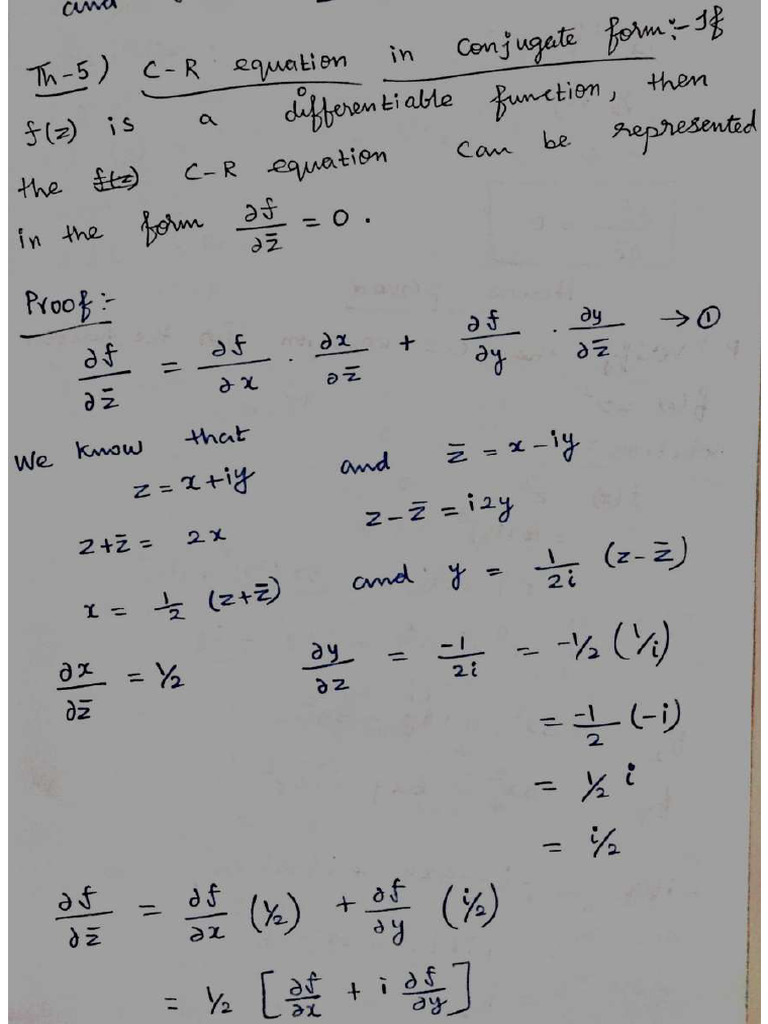 and
Th-5) C-R equation in conjugate form:- If
f(z) is a differentiable function, then
the f(z) C-R equation can be represented
in the form ∂f/∂z̄ = 0.
Proof:-
∂f/∂z̄ = ∂f/∂x . ∂x/∂z̄ + ∂f/∂y . ∂y/∂z̄ → ①
We know that
z = x+iy and z̄ = x-iy
z+z̄ = 2x z-z̄ = i2y
x = 1/2 (z+z̄) and y = 1/2i (z-z̄)
∂x/∂z̄ = 1/2 ∂y/∂z = -1/2i = -1/2 (1/i)
= -1/2 (-i)
= 1/2 i
= i/2
∂f/∂z̄ = ∂f/∂x (1/2) + ∂f/∂y (i/2)
= 1/2 [∂f/∂x + i ∂f/∂y]